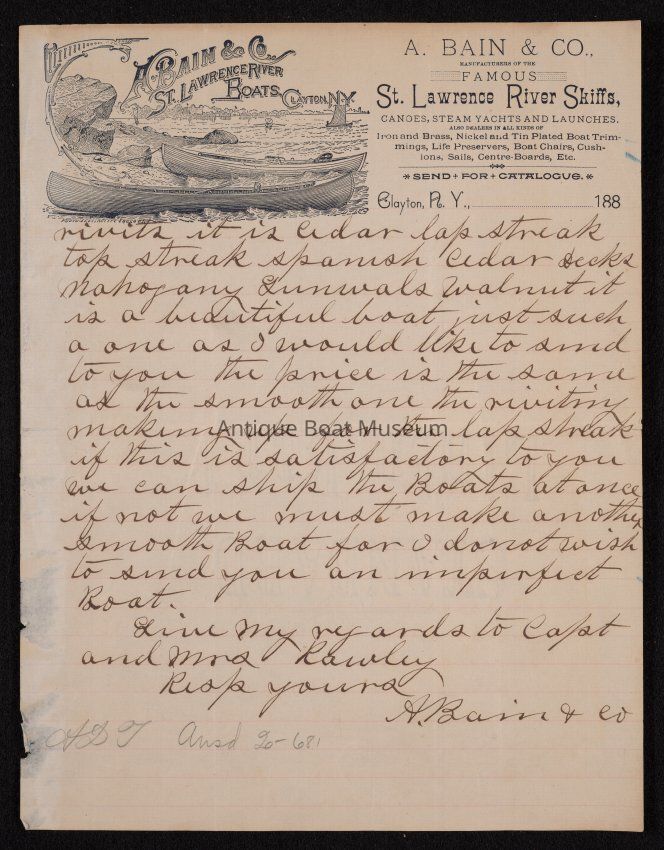 A. BAIN & CO.
ST. LAWRENCE RIVER
BOATS.
CLAYTON, N.Y.
A. BAIN & CO.,
MANUFACTURERS OF THE
FAMOUS
St. Lawrence River Skiffs,
CANOES, STEAM YACHTS AND LAUNCHES.
ALSO DEALERS IN ALL KINDS OF
Iron and Brass, Nickel and Tin Plated Boat Trim-
mings, Life Preservers, Boat Chairs, Cush-
ions, Sails, Centre-Boards, Etc.
SEND + FOR + CATALOGUE.
Clayton, N. Y., 188
rivits it is Cedar lap streak
top streak spanish Cedar decks
Mahogany Gunwals walnut it
is a beautiful boat just such
a one as I would like to send
to you the price is the same
as the smooth one the riviting
making up for the lap streak
if this is satisfactory to you
we can ship the Boats at once
if not we must make another
smooth Boat for I donot wish
to send you an imperfect
Boat.
Give my regards to Capt
and Mrs Rawley
Resp yours
A. Bain & Co
Ansd
Antique Boat Museum